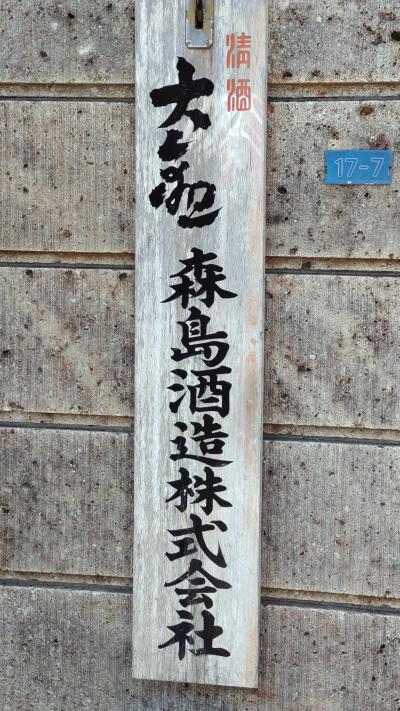 清酒
大観 森島酒造株式会社
17-7